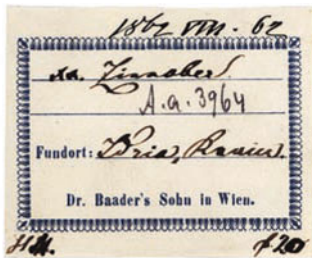 1862 VIII. 62
xx. Zinnober.
A.a. 3964
Fundort: Idria, Krain.
Dr. Baader's Sohn in Wien.
f 20